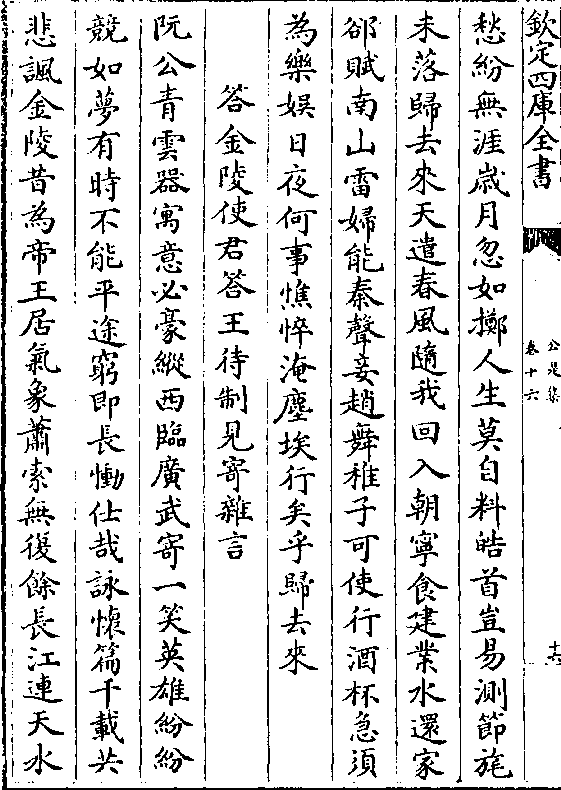 欽定四庫全書
公是集
卷十六
十六
愁紛無涯歳月忽如擲人生莫自料皓首豈易測節旄
未落歸去來天遣春風隨我回入朝寧食建業水還家
郤賦南山雷婦能秦聲妾趙舞稚子可使行酒杯急須
為樂娯日夜何事憔悴淹塵埃行矣乎歸去來
答金陵使君答王待制見寄雜言
阮公青雲器寓意必豪縱西臨廣武寄一笑英雄紛紛
競如夢有時不能平途窮即長慟仕哉詠懷篇千載共
悲諷金陵昔為帝王居氣象蕭索無復餘長江連天水